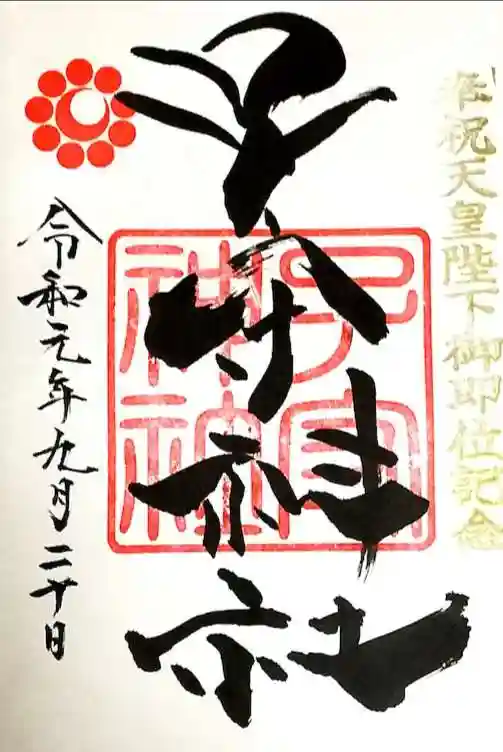 奉祝天皇陛下御即位記念
子守神社
子守神社
令和元年九月二十日